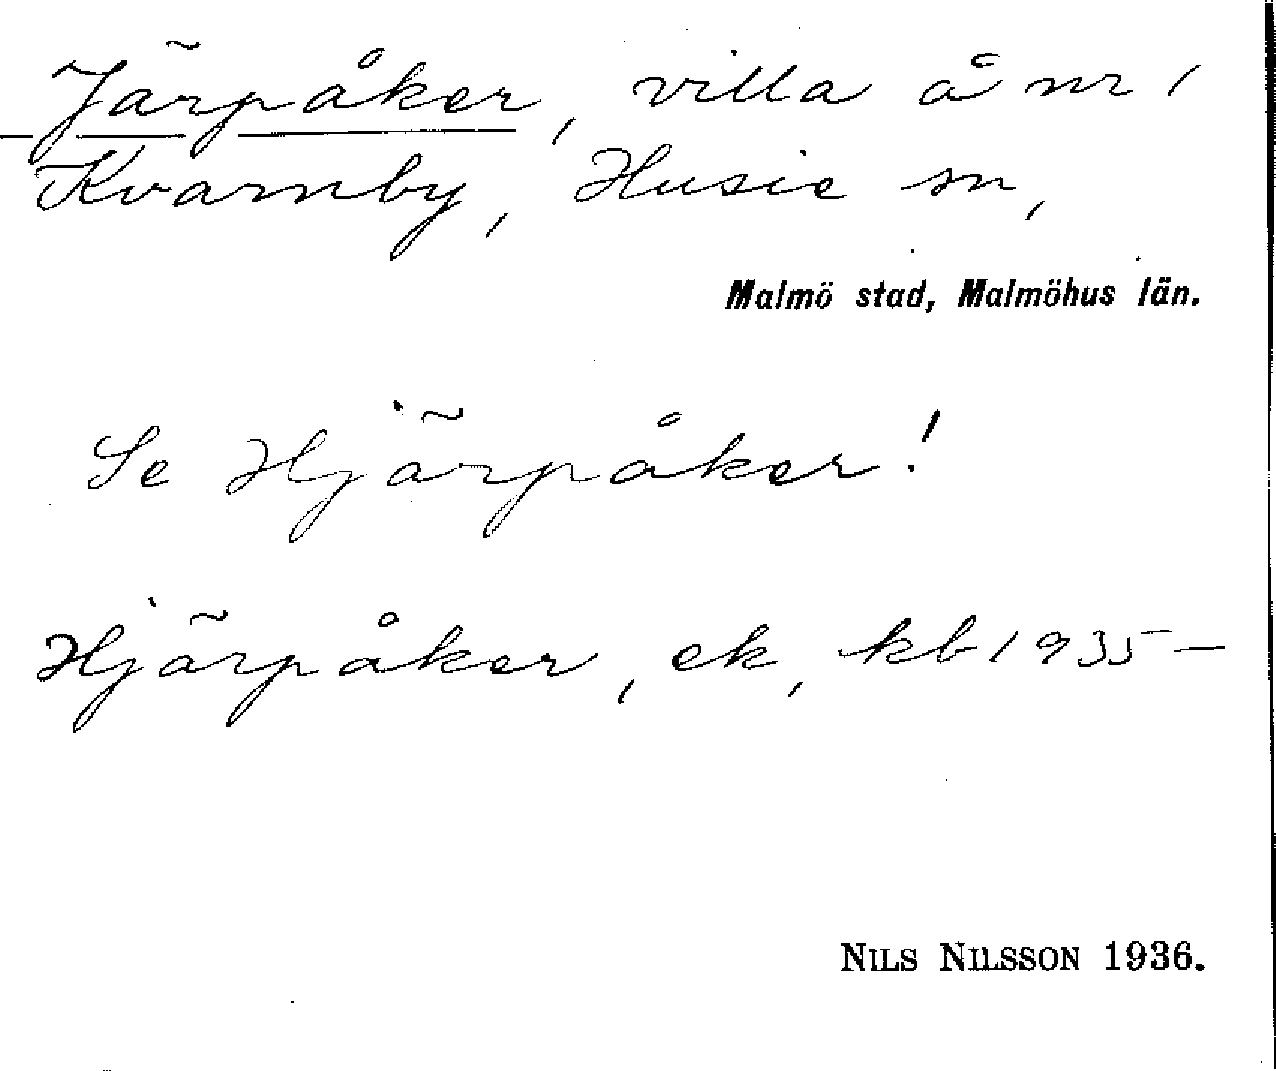 Järpåker, villa å nr 1
Kvarnby, Husie sn,
Malmö stad, Malmöhus län.
Se Hjärpåker!
Hjärpåker, ek, kb 1935–
NILS NILSSON 1936.